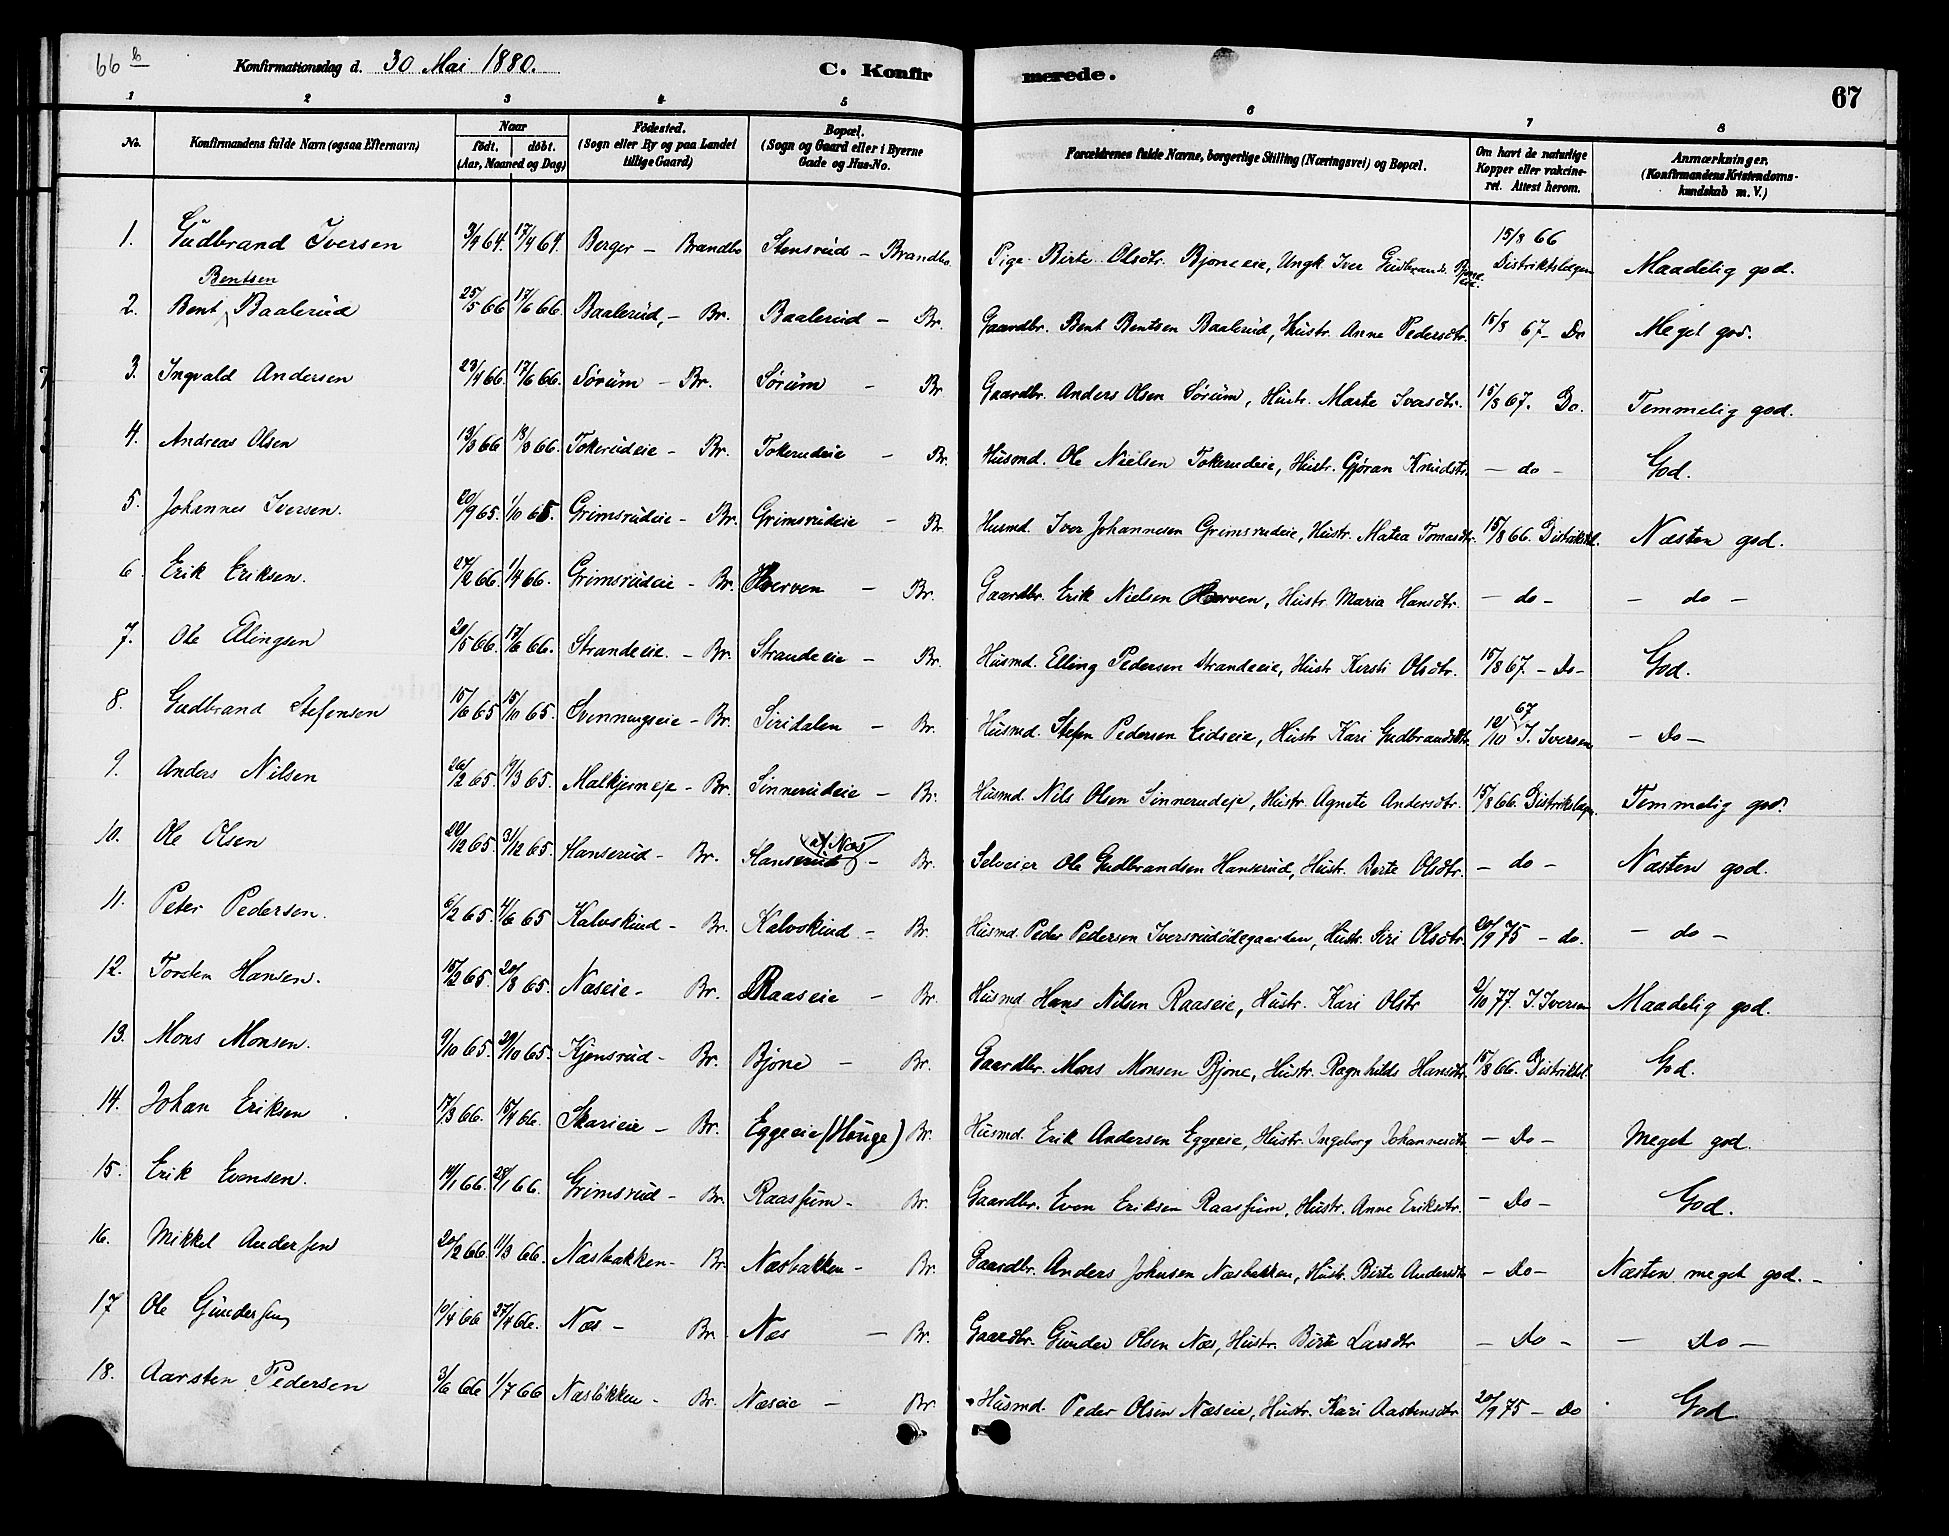 66 b
Konfirmationsdag d. 30 Mai 1880.
C. Konfirmerede.
67
1 2 3 4 5 6 7 8
No. Konfirmandens fulde Navn (ogsaa Efternavn) Naar födt. döbt. (Aar, Maaned og Dag) Födested. (Sogn eller By og paa Landet tillige Gaard) Bopæl. (Sogn og Gaard eller i Byerne Gade og Hus-No. Forældrenes fulde Navne, borgerlige Stilling (Næringsvei) og Bopæl. Om havt de naturlige Kopper eller vakcineret. Attest herom. Anmærkninger. (Konfirmandens Kristendomskundskab m. V.)
1. Gudbrand Iversen 3/4 64. 17/4 64. Berger - Brandbo Stensrud - Brandbo. Pige Birte Olsdtr. Bjoneeie, Ungk. Iver Gudbrands. Bjoneeie. 15/8 66 Distriktslægen Maadelig god.
2. Bent Bentsen Baalerud 25/5 66 17/6 66. Baalerud, - Br. Baalerud - Br. Gaardbr. Bent Bentsen Baalerud, Hustr. Anne Pedersdtr. 15/8 67 - Do Meget god.
3. Ingvald Andersen 23/4 66. 17/6 66. Sörum - Br. Sörum - Br Gaardbr. Anders Olsen Sörum, Hustr. Marte Iversdtr. 15/8 67. Do. Temmelig god.
4. Andreas Olsen 13/3 66 18/3 66. Tokerudeie - Br. Tokerudeie - Br. Husmd. Ole Nielsen Tokerudeie, Hustr. Gjöran Knudsdtr. - do - God.
5. Johannes Iversen. 20/9 65. 1/10 65. Grimsrudeie - Br. Grimsrudeie - Br Husmd. Iver Johannesen Grimsrudeie, Hustr. Matea Tomasdtr. 15/8 66. Distriktsl. Næsten god.
6. Erik Eriksen. 27/2 66. 1/4 66. Grimsrudeie - Br. Hverven - Br. Gaardbr. Erik Nielsen Hverven, Hustr. Maria Hansdtr. - do - - do -
7. Ole Ellingsen 20/5 66. 17/6 66. Strandeeie. - Br. Strandeeie - Br. Husmd. Elling Pedersen Strandeeie, Hustr Kersti Olsdtr. 15/8 67. - Do - God.
8. Gudbrand Stefensen 15/6 65 15/10 65. Svenningseie - Br. Siridalen - Br. Husmd. Stefen Pedersen Eidseie, Hustr Kari Gudbrandsdtr 12/10 67 I. Iversen - Do -
9. Anders Nilsen 26/2 65. 19/3 65. Malkjerneje - Br. Sinnerudeie - Br. Husmd. Nils Olsen Sinnerudeje, Hustr. Agnete Andersdtr. 15/8 66. Distriktslægen Temmelig god.
10. Ole Olsen 22/12 65. 31/12 65. Hanserud - Br. Hanserud - Br. Selveier Ole Gudbrandsen Hanserud, Hustr. Berte Olsdtr. - do - Næsten god.
11. Peter Pedersen. 6/2 65. 4/6 65 Kalvskind - Br. Kalvskind - Br. Husmd. Peder Pedersen Iversrudödegaarden, Hustr. Siri Olsdtr. 20/9 75 - do. - do -
12. Torsten Hansen. 15/2 65. 20/8 65. Næseie - Br. Raaseie - Br. Husmd Hans Nilsen Raaseie, Hustr. Kari Olstr 9/10 77. I. Iversen Maadelig god.
13. Mons Monsen. 9/10 65. 29/10 65. Kjensrud - Br. Bjone - Br. Gaardbr. Mons Monsen Bjone, Hustr. Ragnhilds Hansdtr. 15/8 66. Distriktsl. God.
14. Johan Eriksen 17/3 66. 15/4 66. Skarieie - Br. Eggeeie (Houge) Br. Husmd. Erik Andersen Eggeeie, Hustr. Ingeborg Johannesdtr - Do - Meget god.
15. Erik Evensen. 14/1 66. 28/1 66. Grimsrud - Br. Raassum - Br. Gaardbr. Even Eriksen Raassum, Hustr. Anne Eriksdtr. - Do - God.
16. Mikkel Andersen 20/2 66. 11/3 66. Næsbakken - Br. Næsbakken - Br. Gaardbr. Anders Johnsen Næsbakken, Hustr. Birte Andersdtr - Do - Næsten meget god. -
17 Ole Gundersen 10/4 66 27/4 66. Næs - Br. Næs - Br. Gaardbr. Gunder Olsen Næs, Hustr. Birte Larsdtr - Do - - Do -
18. Aarsten Pedersen 3/6 66 1/7 66 Næslökken - Br. Næseie - Br. Husmd. Peder Olsen Næseie, Hustr. Kari Aastensdtr. 20/9 75 - Do God